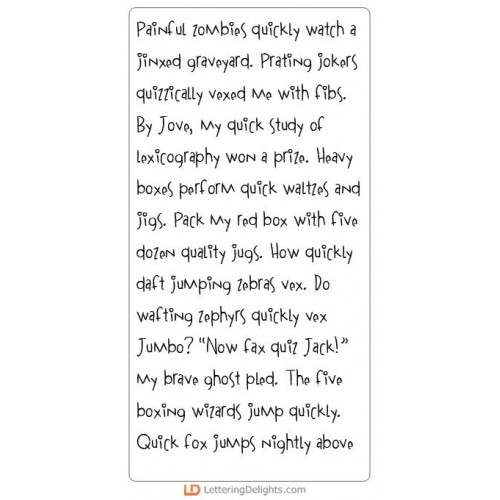 Painful zombies quickly watch a
jinxed graveyard. Prating jokers
quizzically vexed me with fibs.
By Jove, my quick study of
lexicography won a prize. Heavy
boxes perform quick waltzes and
jigs. Pack my red box with five
dozen quality jugs. How quickly
daft jumping zebras vex. Do
wafting zephyrs quickly vex
Jumbo? “Now fax quiz Jack!”
my brave ghost pled. The five
boxing wizards jump quickly.
Quick fox jumps nightly above
LD LetteringDelights.com